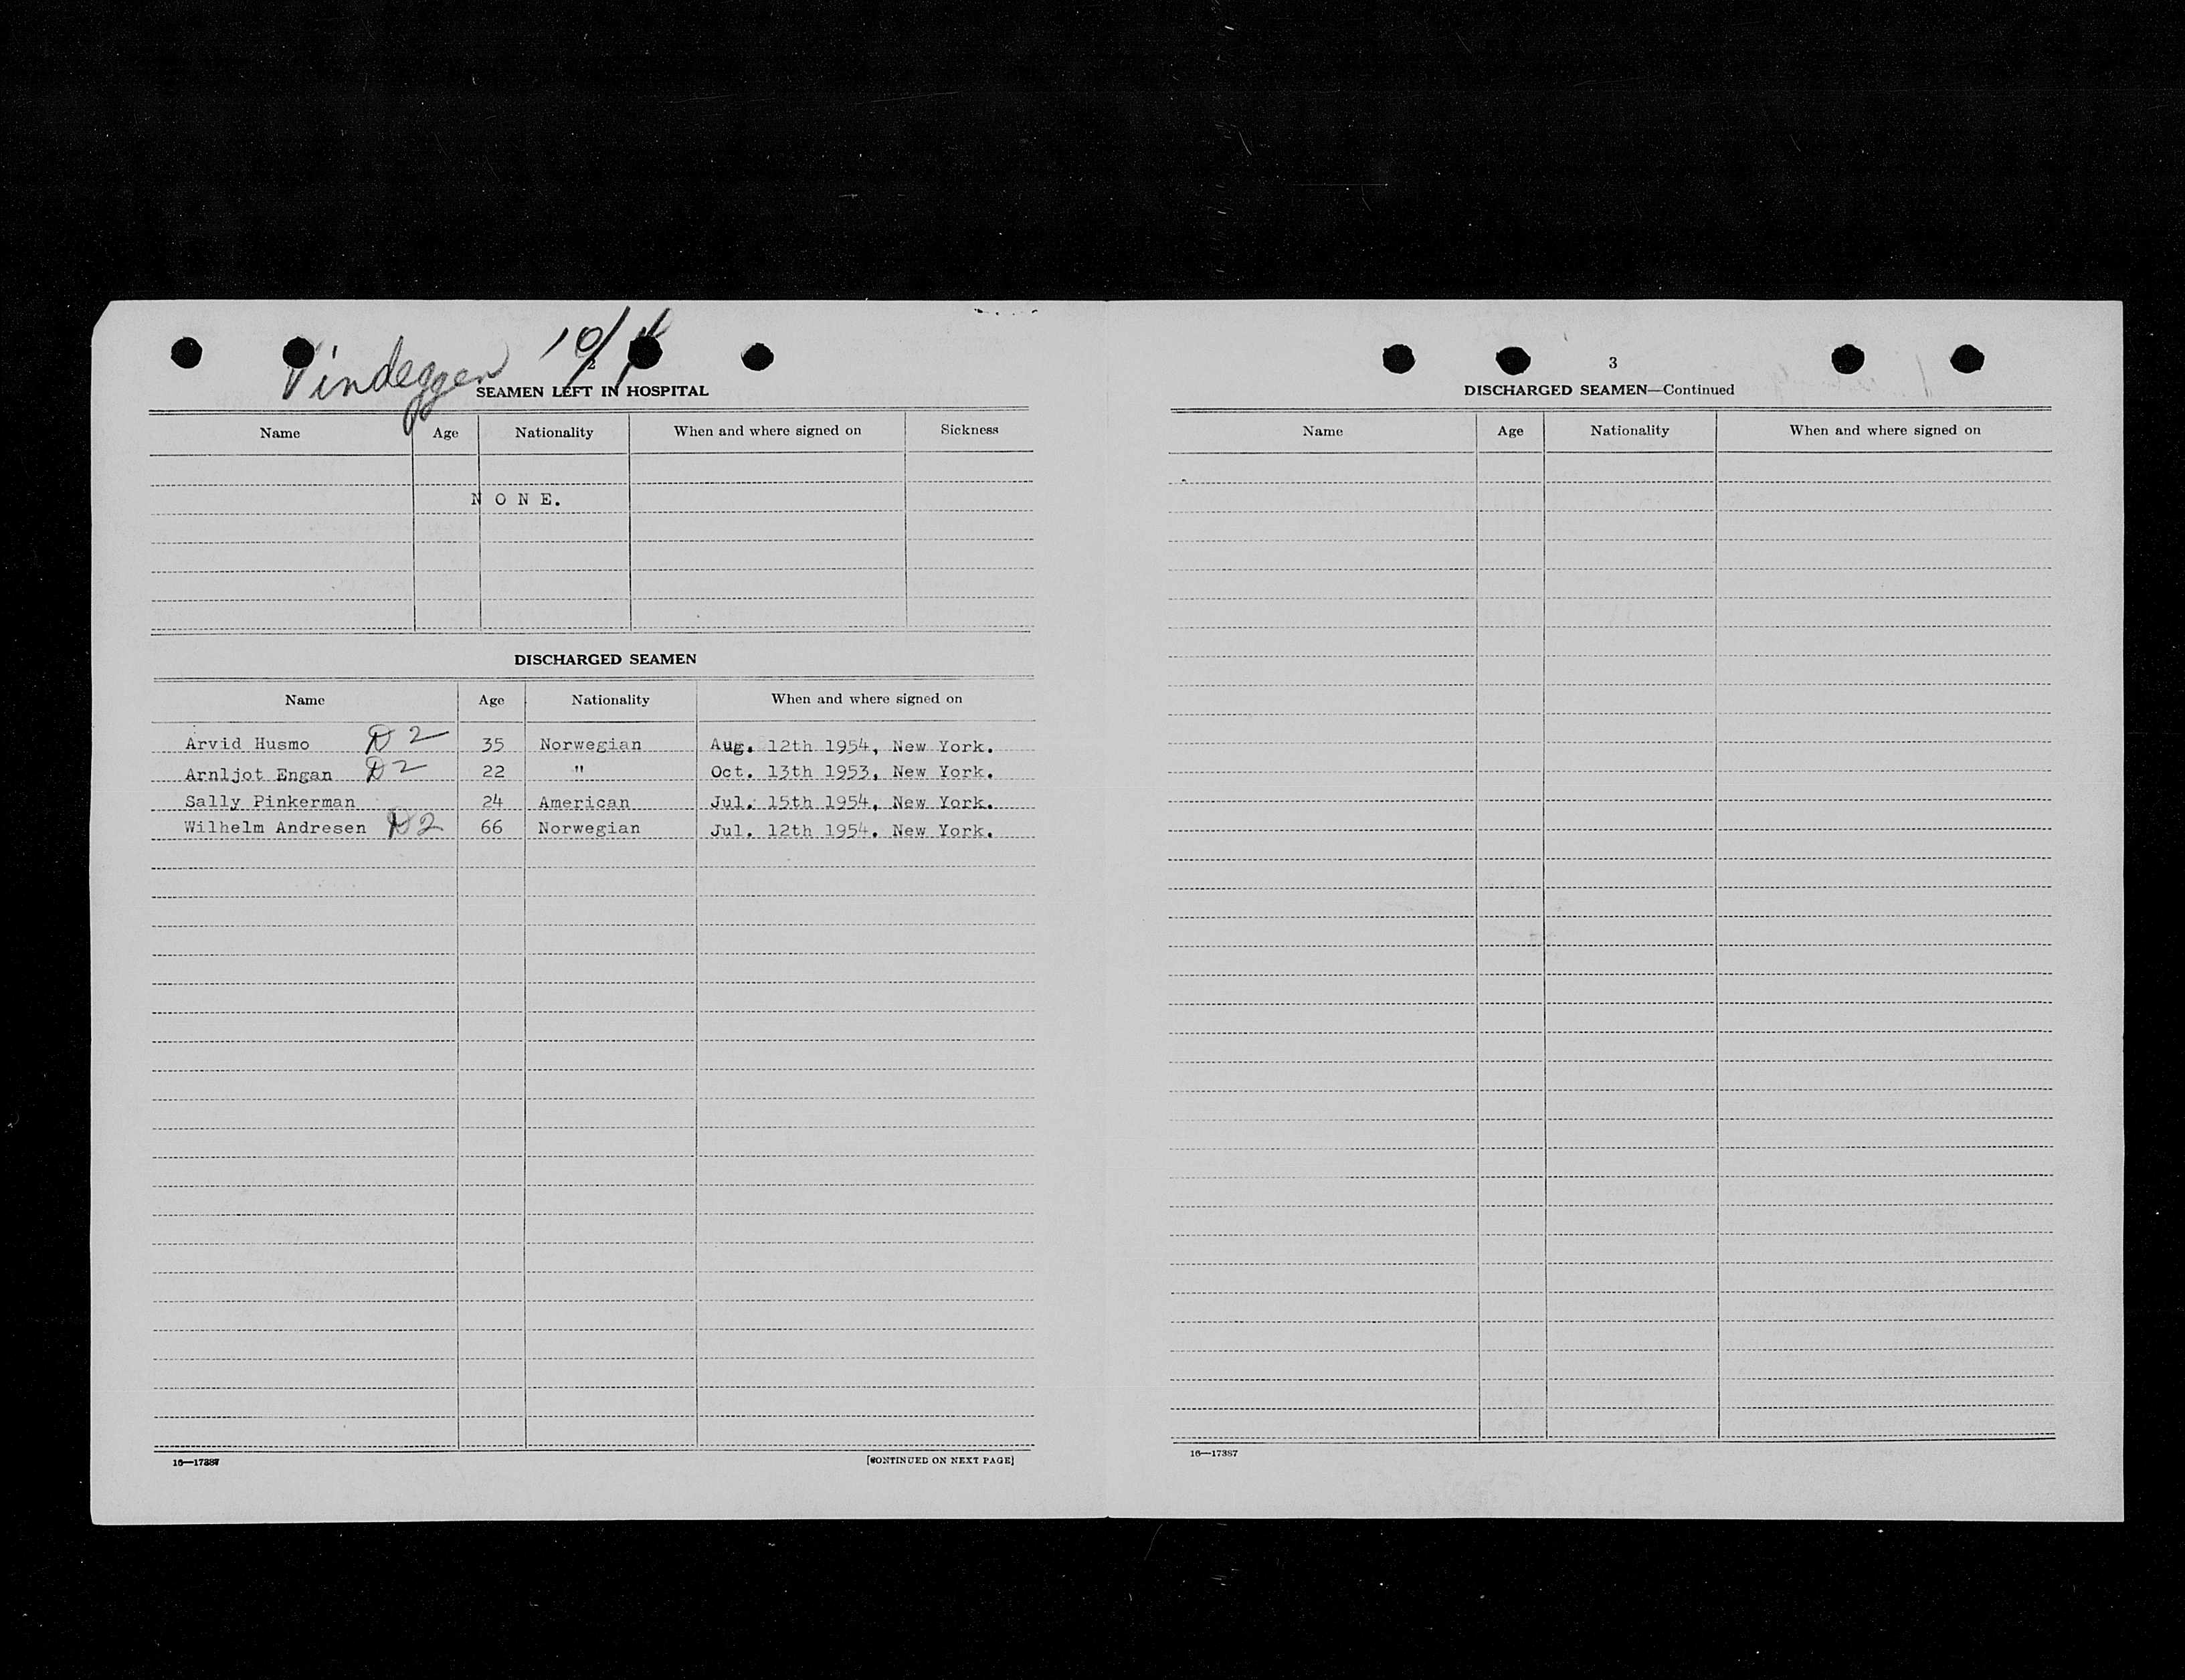 Vindeggen 10/
2
SEAMEN LEFT IN HOSPITAL
Name Age Nationality When and where signed on Sickness
N O N E.
DISCHARGED SEAMEN
Name Age Nationality When and where signed on
Arvid Husmo D2 35 Norwegian Aug. 12th 1954, New York.
Arnljot Engan D2 22 " Oct. 13th 1953, New York.
Sally Pinkerman 24 American Jul. 15th 1954, New York.
Wilhelm Andresen D2 66 Norwegian Jul. 12th 1954. New York.
16—17387 [CONTINUED ON NEXT PAGE]
3
DISCHARGED SEAMEN—Continued
Name Age Nationality When and where signed on
16—17387